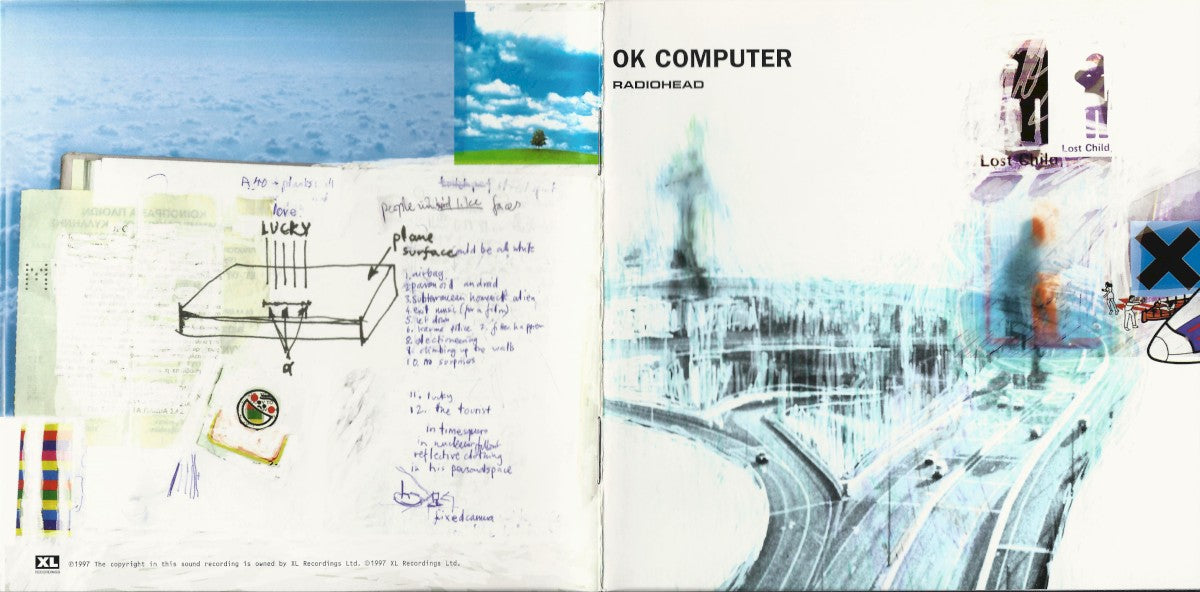 love
LUCKY
plane
surface
people
like faces
could be all white
1. airbag
2. paranoid android
3. subterranean homesick alien
4. exit music (for a film)
5. let down
6. karma police 7. fitter happier
8. electioneering
9. climbing up the walls
10. no surprises
11. lucky
12. the tourist
in timesquare
in nuclear fallout
reflective clothing
in his personal space
fixed camera
a
M
XL
RECORDINGS
℗1997 The copyright in this sound recording is owned by XL Recordings Ltd. ©1997 XL Recordings Ltd.
OK COMPUTER
RADIOHEAD
Lost Child
Lost Child